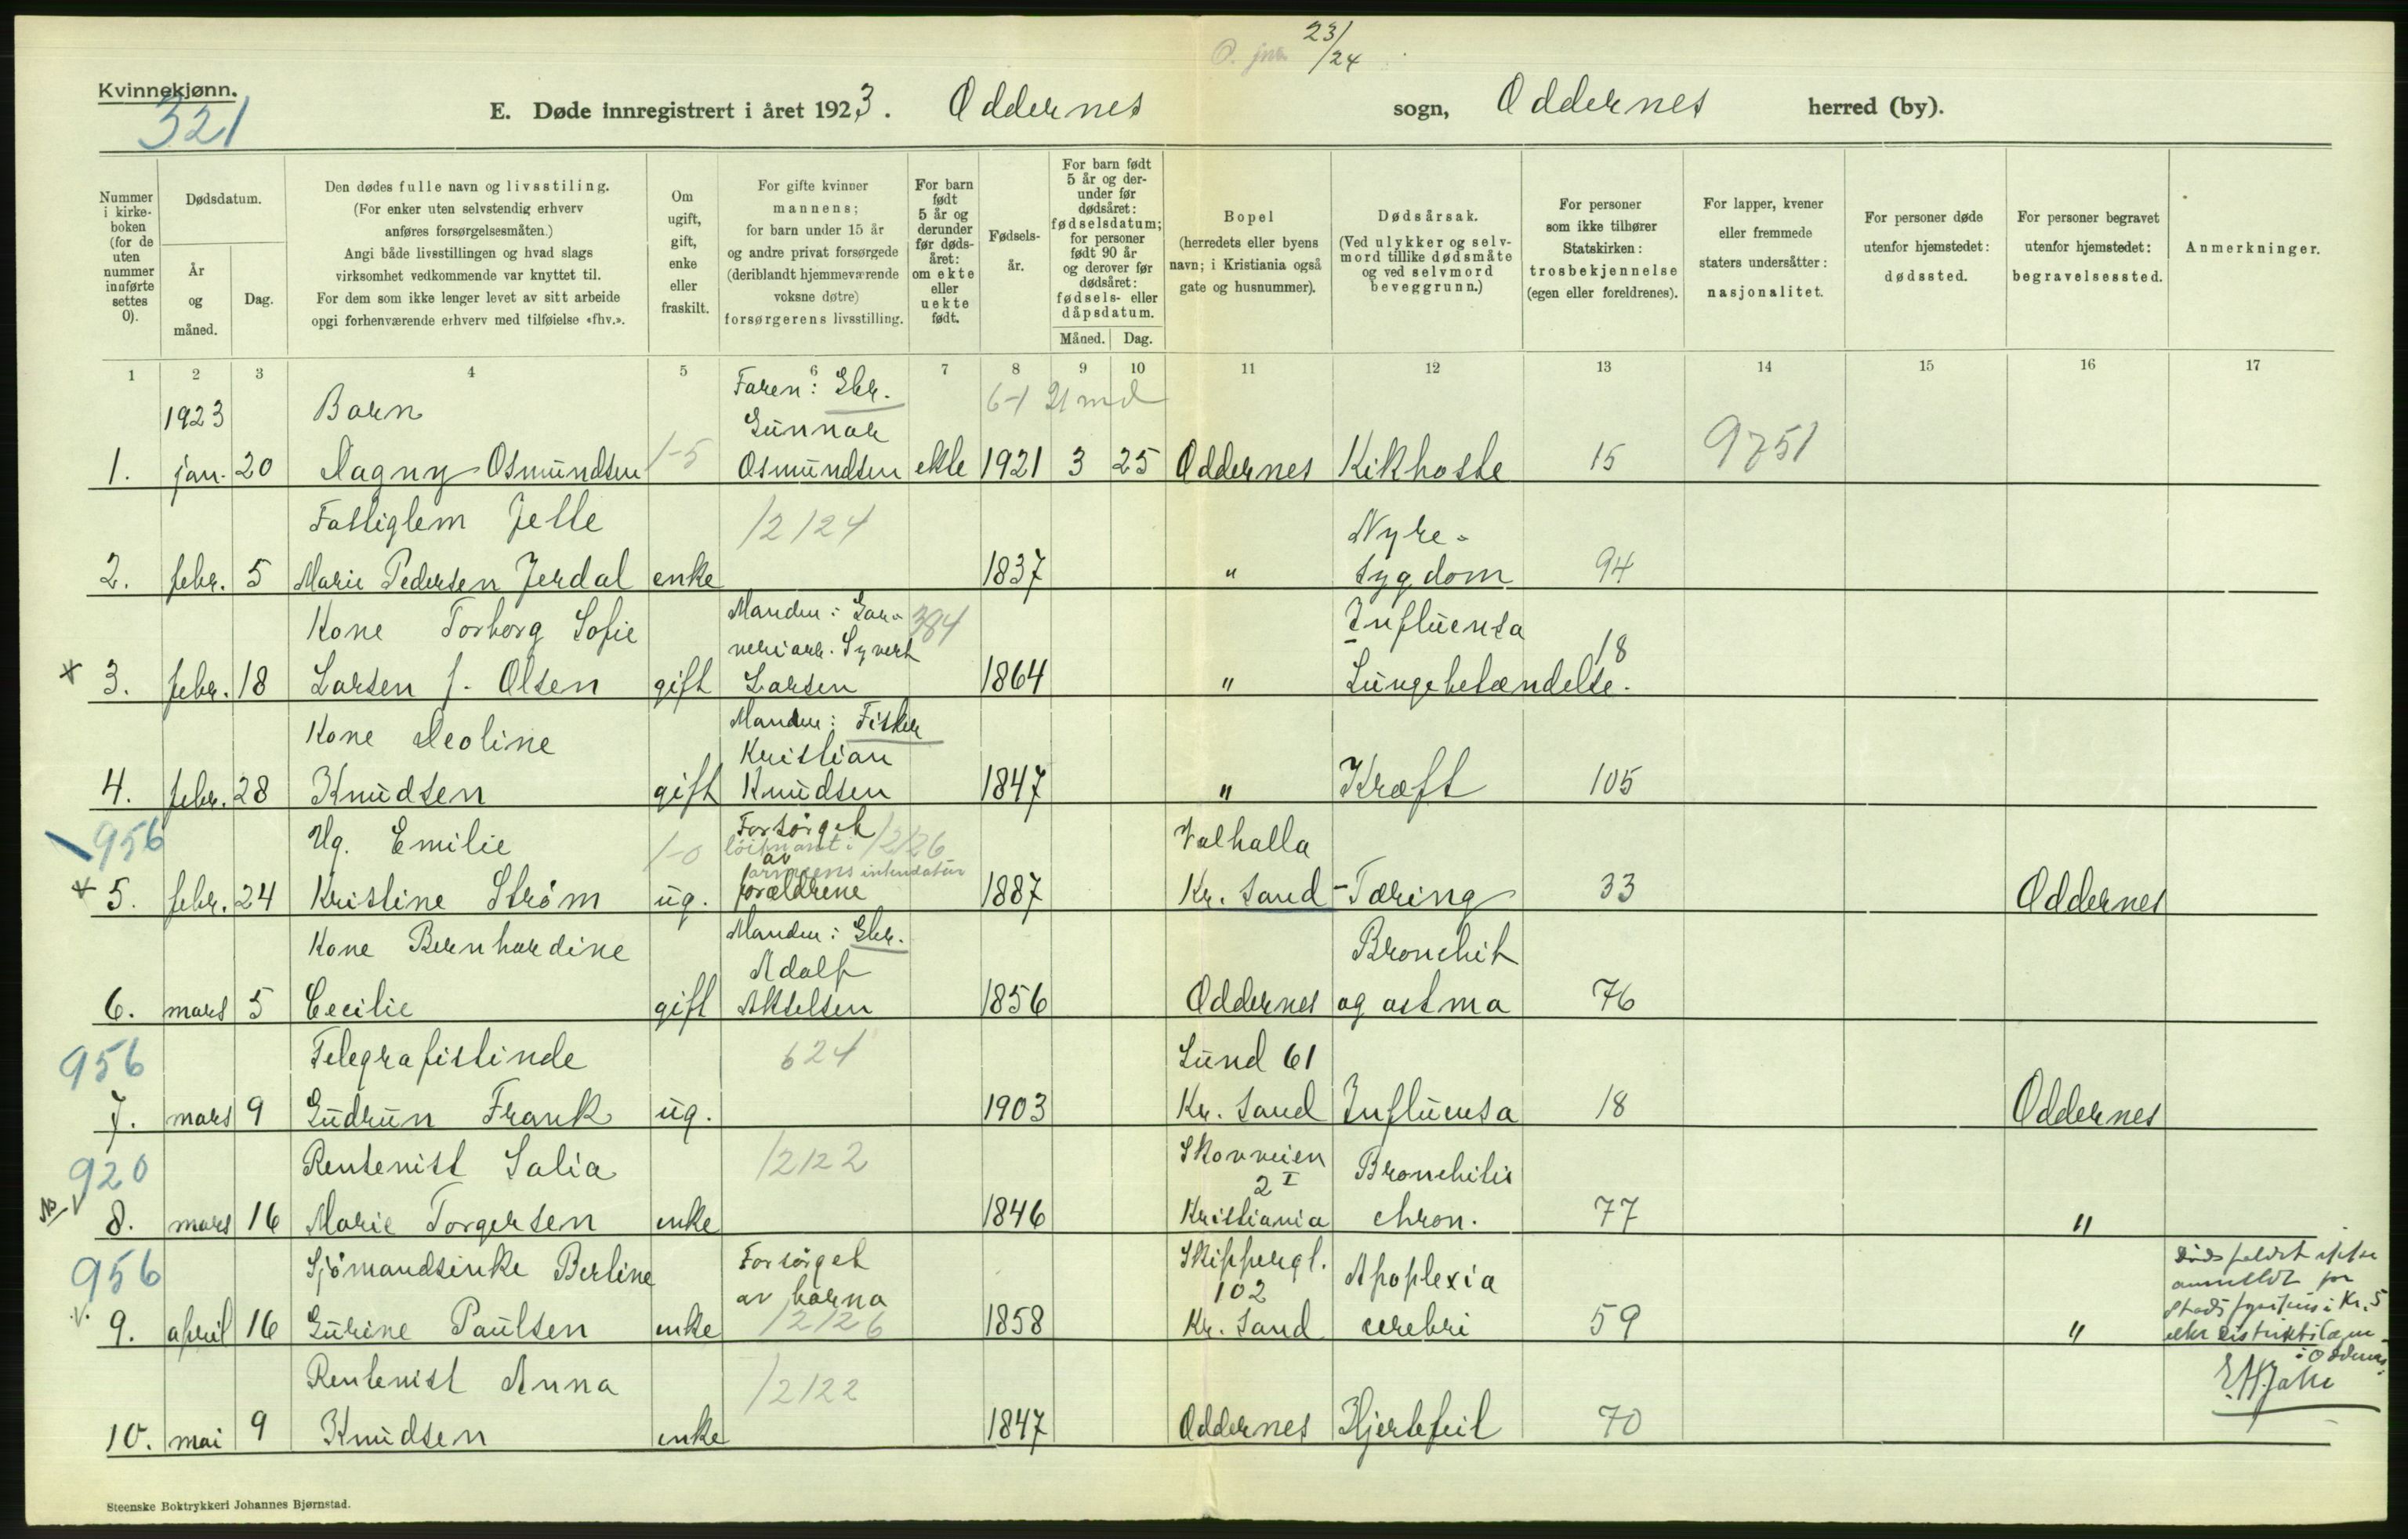 23/24
Kvinnekjønn.
321
E. Døde innregistrert i året 1923. Oddernes sogn, Oddernes herred (by).
Nummer i kirkeboken (for de uten nummer innførte settes 0).
Dødsdatum.
År og måned.
Dag.
Den dødes fulle navn og livsstiling.
(For enker uten selvstendig erhverv
anføres forsørgelsesmåten.)
Angi både livsstillingen og hvad slags
virksomhet vedkommende var knyttet til.
For dem som ikke lenger levet av sitt arbeide
opgi forhenværende erhverv med tilføielse «fhv.».
Om ugift, gift, enke eller fraskilt.
For gifte kvinner
mannens;
for barn under 15 år
og andre privat forsørgede
(deriblandt hjemmeværende
voksne døtre)
forsørgerens livsstilling.
For barn født 5 år og derunder før dødsåret: om ekte eller uekte født.
Fødselsår.
For barn født 5 år og derunder før dødsåret: fødselsdatum; for personer født 90 år og derover før dødsåret: fødsels- eller dåpsdatum.
Måned. Dag.
Bopel
(herredets eller byens
navn; i Kristiania også
gate og husnummer).
Dødsårsak.
(Ved ulykker og selv-
mord tillike dødsmåte
og ved selvmord
beveggrunn.)
For personer
som ikke tilhører
Statskirken:
trosbekjennelse
(egen eller foreldrenes).
For lapper, kvener
eller fremmede
staters undersåtter:
nasjonalitet.
For personer døde
utenfor hjemstedet:
dødssted.
For personer begravet
utenfor hjemstedet:
begravelsessted.
Anmerkninger.
1 2 3 4 5 6 7 8 9 10 11 12 13 14 15 16 17
1923 Barn Faren: Gbr. 6-1 21 md
Gunnar
1. jan. 20 Dagny Osmundsen 1-5 Osmundsen ekte 1921 3 25 Oddernes Kikhoste 15 9751
Fattiglem Jelle 12124 Nyre-
2. febr. 5 Marie Pedersen Jerdal enke 1837 " sygdom 94
Kone Torborg Sofie Manden: Gar- 384 Influensa
veriarb. Syvert 18
3. febr. 18 Larsen f. Olsen gift Larsen 1864 " Lungebetændelse.
Kone Deoline Manden: Fisker
Kristian
4. febr. 28 Knudsen gift Knudsen 1847 " Kræft 105
956 Ug. Emilie 1-0 Forsørget 12126 Valhalla
løitnant i
av
armeens intendatur
5. febr. 24 Kristine Strøm ug. forældrene 1887 Kr. sand - Tæring 33 Oddernes
Kone Bernhardine Manden: Gbr. Bronchit
Adolf
6. mars 5 Cecilie gift Akselsen 1856 Oddernes og astma 76
956 Telegrafistinde 624 Lund 61
7. mars 9 Gudrun Frank ug. 1903 Kr. sand Influensa 18 Oddernes
920 Rentenist Salia 12122 Skovveien Bronchitis
2 I
8. mars 16 Marie Torgersen enke 1846 Kristiania chron. 77 "
956 Sjømandsenke Berline Forsørget Skippergt. Apoplexia
av barna 102
9. april 16 Gurine Paulsen enke 12126 1858 Kr. sand cerebri 59 "
Dødsfaldet ikke
anmeldt for
Stadsfysikus i Kr. S
eller distriktslægen
i Oddernes.
Rentenist Anna 12122
10. mai 9 Knudsen enke 1847 Oddernes Hjertefeil 70
Steenske Boktrykkeri Johannes Bjørnstad.